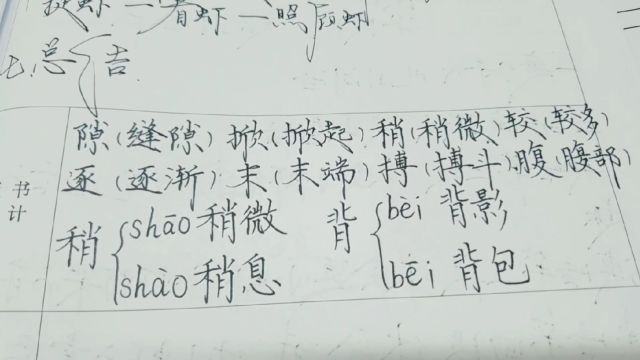 捉虾一看虾一照顾虾
七.总 告
隙(缝隙) 掀(掀起) 稍(稍微) 较(较多)
书计
逐(逐渐) 末(末端) 搏(搏斗) 腹(腹部)
稍 { shāo 稍微 背 { bèi 背影
shào 稍息 bēi 背包